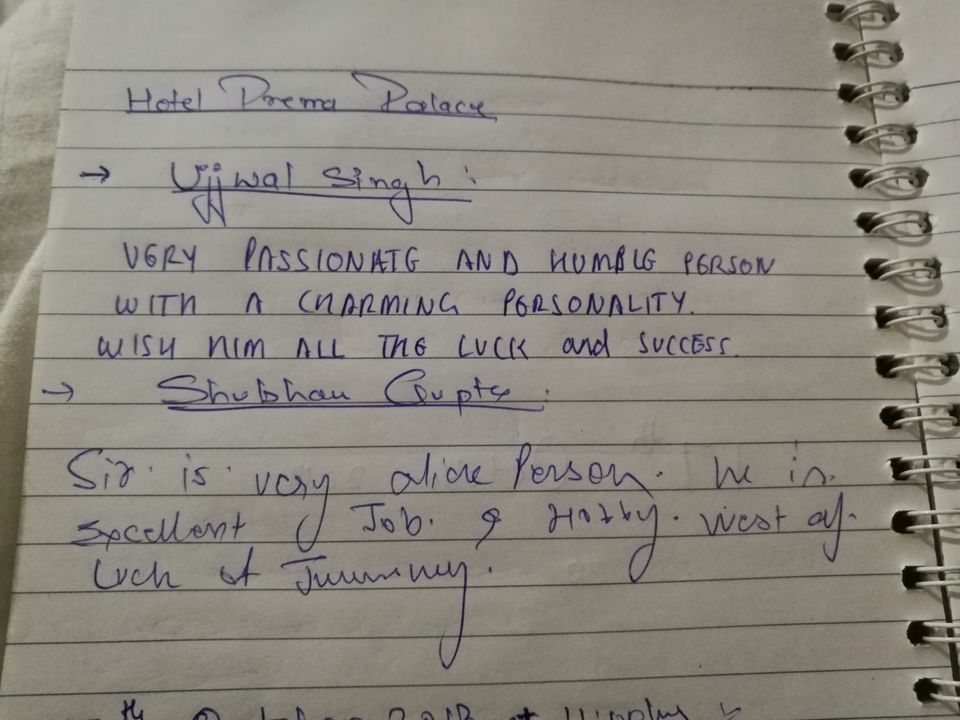 Hotel Prema Palace
→ Ujjwal Singh:
VERY PASSIONATE AND HUMBLE PERSON
WITH A CHARMING PERSONALITY.
WISH HIM ALL THE LUCK and SUCCESS.
→ Shubham Gupta:
Sir is very alive Person. he is
Excellent Job. & Hobby. West of
Luck of Journey.
th October 2018 at